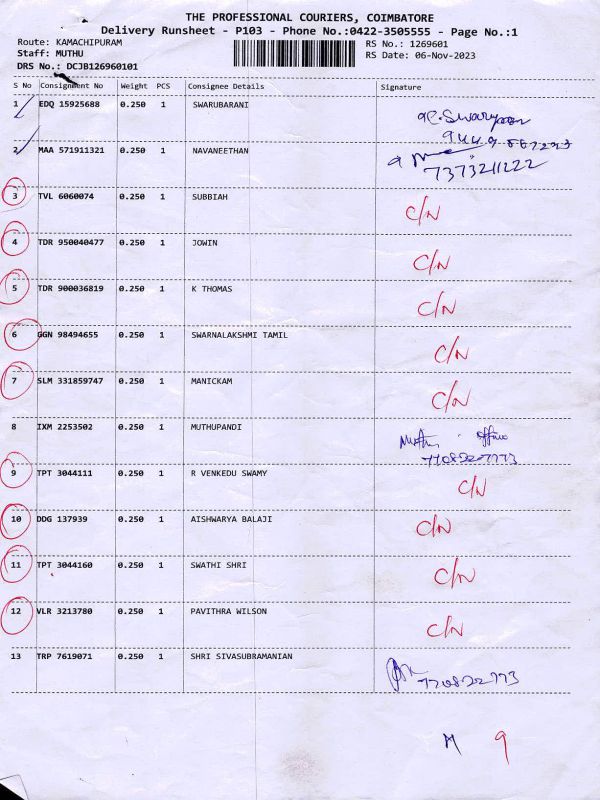 THE PROFESSIONAL COURIERS, COIMBATORE
Delivery Runsheet - P103 - Phone No.:0422-3505555 - Page No.:1
Route: KAMACHIPURAM
RS No.: 1269601
Staff: MUTHU
RS Date: 06-Nov-2023
DRS No.: DCJB126960101
S No Consignment No Weight PCS Consignee Details Signature
1 EDQ 15925688 0.250 1 SWARUBARANI
2 MAA 571911321 0.250 1 NAVANEETHAN
7373211222
3 TVL 6060074 0.250 1 SUBBIAH C/N
4 TDR 950040477 0.250 1 JOWIN C/N
5 TDR 900036819 0.250 1 K THOMAS C/N
6 GGN 98494655 0.250 1 SWARNALAKSHMI TAMIL C/N
7 SLM 331859747 0.250 1 MANICKAM C/N
8 IXM 2253502 0.250 1 MUTHUPANDI office
9 TPT 3044111 0.250 1 R VENKEDU SWAMY C/N
10 DDG 137939 0.250 1 AISHWARYA BALAJI C/N
11 TPT 3044160 0.250 1 SWATHI SHRI C/N
12 VLR 3213780 0.250 1 PAVITHRA WILSON C/N
13 TRP 7619071 0.250 1 SHRI SIVASUBRAMANIAN
9